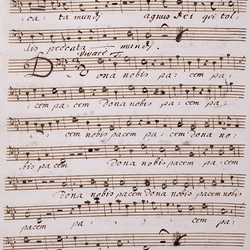 ca - ta mundj agnus Dei qui tol -
lis peccata mundj.
Vivace T.
Dona nobis pa - cem pa -
cem pa - cem dona nobis pa - cem pa -
cem dona nobis pacem pa - cem dona no -
bis pacem dona nobis pacem
dona nobis pacem dona nobis pacem
pacem pa - cem pa -